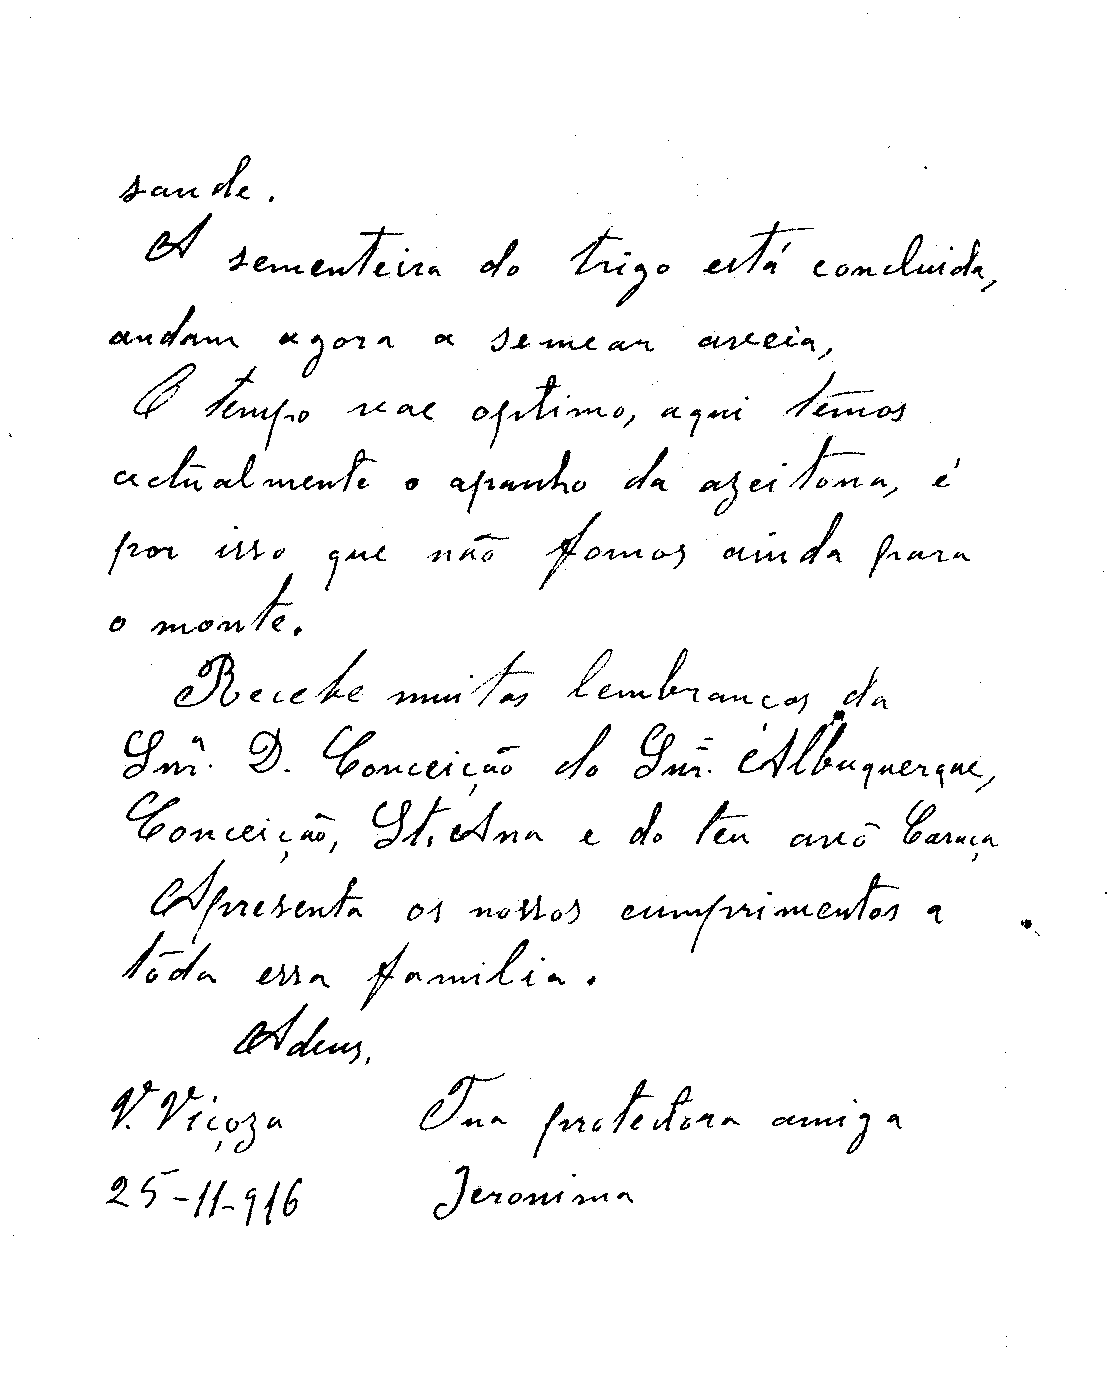 saude.
A sementeira do trigo está concluida,
andam agora a semear aveia,
O tempo vae optimo, aqui temos
actualmente o apanho da azeitona, é
por isso que não fomos ainda para
o monte.
Recebe muitas lembranças da
Snrª. D. Conceição do Snr. Albuquerque,
Conceição, St. Ana e do teu avô Caraça
Apresenta os nossos cumprimentos a
tôda essa familia.
Adeus,
V. Viçoza Tua protectora amiga
25-11-916 Jeronima